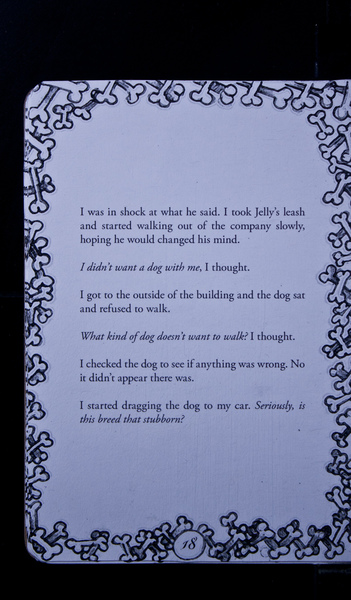 I was in shock at what he said. I took Jelly's leash
and started walking out of the company slowly,
hoping he would changed his mind.
I didn't want a dog with me, I thought.
I got to the outside of the building and the dog sat
and refused to walk.
What kind of dog doesn't want to walk? I thought.
I checked the dog to see if anything was wrong. No
it didn't appear there was.
I started dragging the dog to my car. Seriously, is
this breed that stubborn?
18